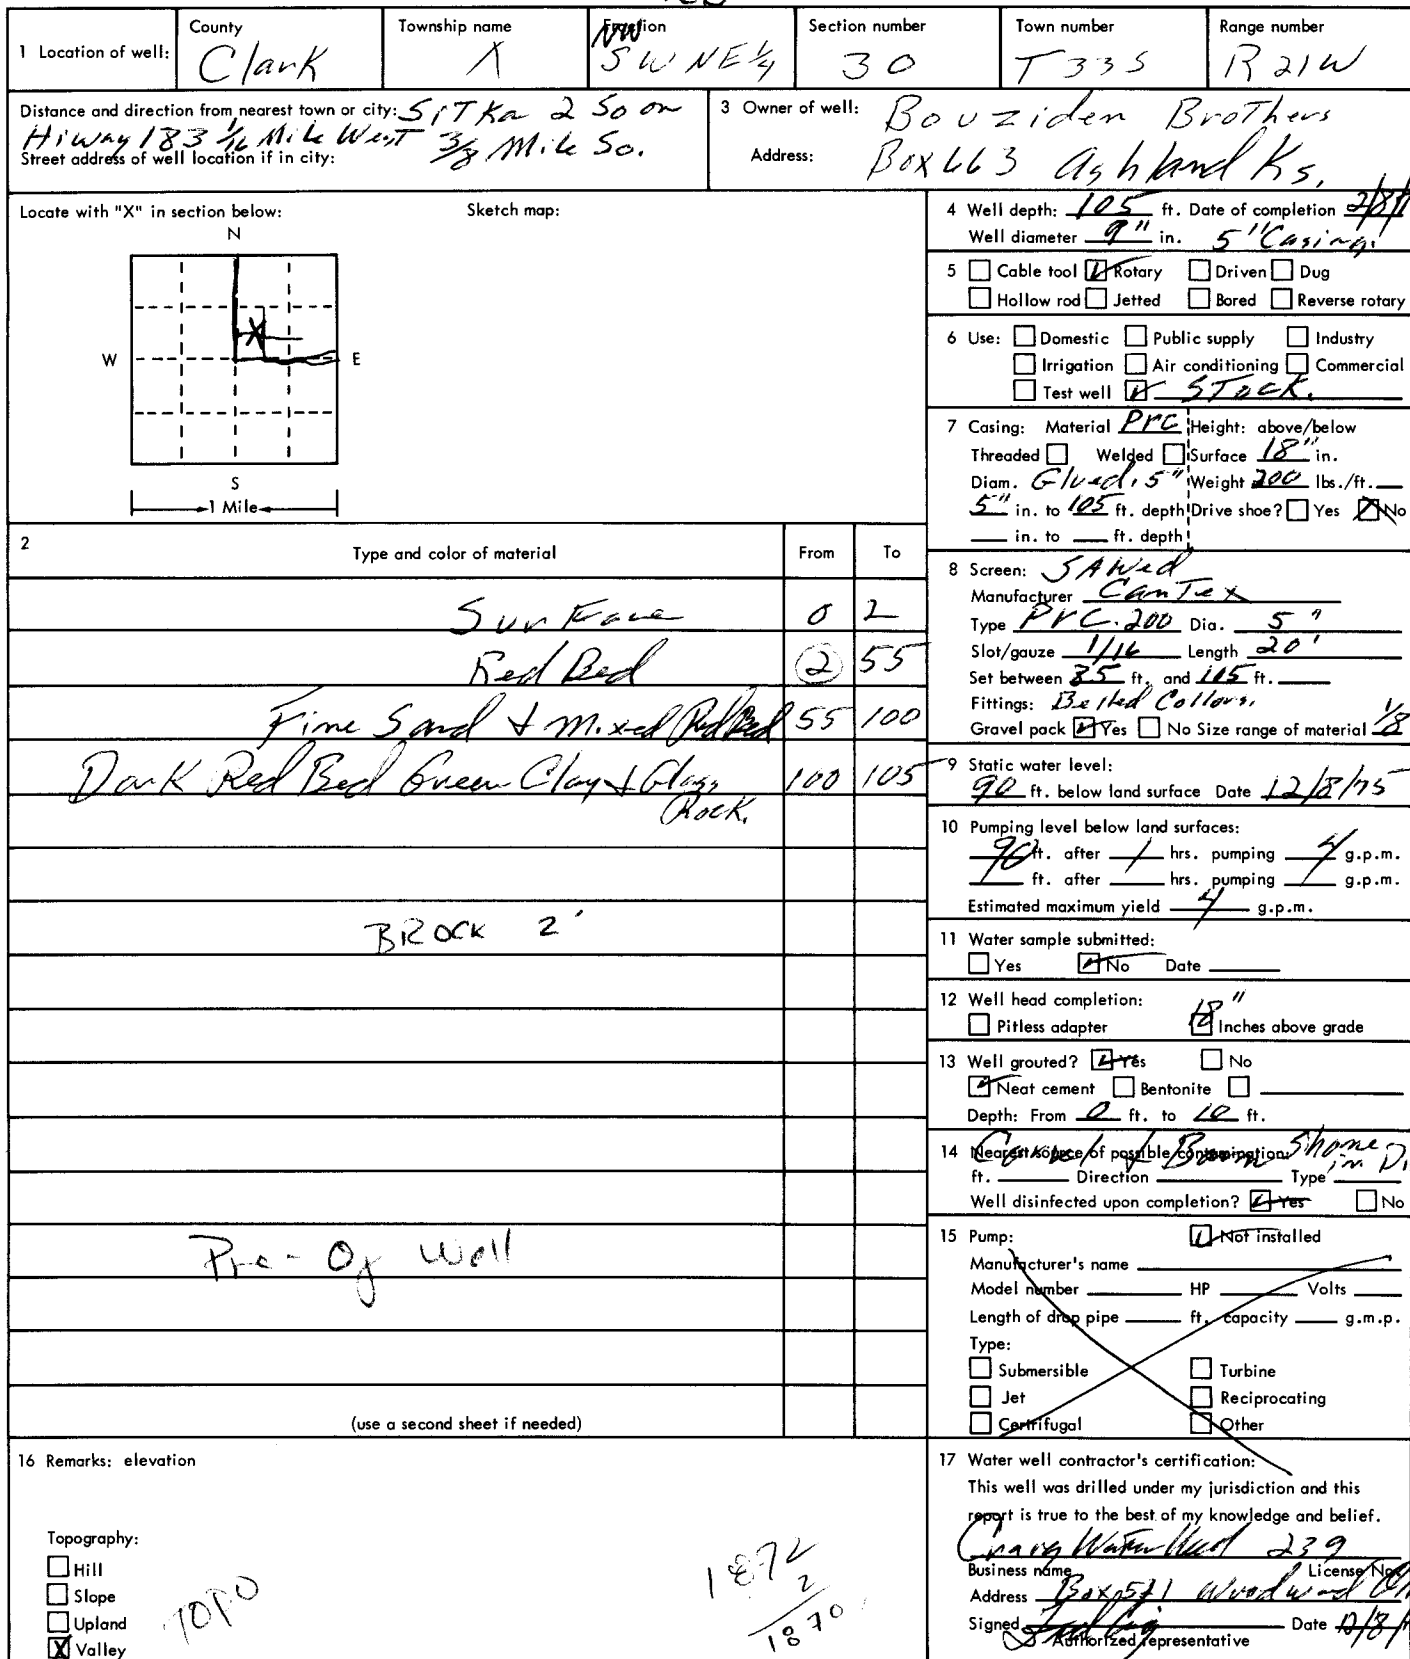 County
Township name
Fraction
Section number
Town number
Range number
1 Location of well:
Clark
X
NW
SW NE 1/4
30
T 33 S
R 21W
Distance and direction from nearest town or city: SiTKa 2 So on
Hiway 183 1/16 Mile West 3/8 Mile So.
Street address of well location if in city:
3 Owner of well: Bouziden Brothers
Address: Box 663 Ashland Ks.
Locate with "X" in section below:
Sketch map:
N
W
E
X
S
1 Mile
2
Type and color of material
From
To
Surface 0 2
Red Bed 2 55
Fine Sand & Mixed Red Bed 55 100
Dark Red Bed Green Clay & Glass 100 105
Rock.
BROCK 2'
Pre-Og Well
(use a second sheet if needed)
4 Well depth: 105 ft. Date of completion
Well diameter 9" in. 5" Casing.
5 Cable tool Rotary Driven Dug
Hollow rod Jetted Bored Reverse rotary
6 Use: Domestic Public supply Industry
Irrigation Air conditioning Commercial
Test well STOCK.
7 Casing: Material PVC Height: above/below
Threaded Welded Surface 18" in.
Diam. Glued. 5" Weight 200 lbs./ft.
5" in. to 105 ft. depth Drive shoe? Yes No
in. to ft. depth
8 Screen: SAWed
Manufacturer CanTex
Type PVC.200 Dia. 5"
Slot/gauze 1/16 Length 20'
Set between 85 ft. and 105 ft.
Fittings: Belled Collors.
Gravel pack Yes No Size range of material 1/8
9 Static water level:
90 ft. below land surface Date 12/8/75
10 Pumping level below land surfaces:
90 ft. after 1 hrs. pumping 4 g.p.m.
ft. after hrs. pumping g.p.m.
Estimated maximum yield 4 g.p.m.
11 Water sample submitted:
Yes No Date
12 Well head completion:
18"
Pitless adapter Inches above grade
13 Well grouted? Yes No
Neat cement Bentonite
Depth: From 0 ft. to 10 ft.
14 Nearest source of possible contamination:
ft. Direction Type
Well disinfected upon completion? Yes No
15 Pump: Not installed
Manufacturer's name
Model number HP Volts
Length of drop pipe ft. capacity g.m.p.
Type:
Submersible Turbine
Jet Reciprocating
Certrifugal Other
16 Remarks: elevation
Topography:
Hill
Slope
Upland
Valley
TOPO
1872
2
1870
17 Water well contractor's certification:
This well was drilled under my jurisdiction and this
report is true to the best of my knowledge and belief.
Water Well 239
Business name License No.
Address Box 571 Woodward
Signed Date 12/8/
Authorized representative